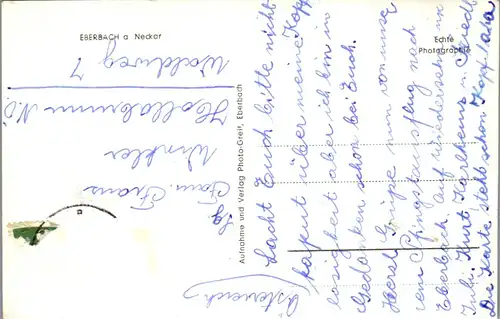 EBERBACH a Neckar
Echte
Photographie
Aufnahme und Verlag Photo-Greif, Eberbach
Fam. Franz
Winkler
Hollabrunn N.Ö.
Waldweg 7
Österreich
Lacht Euch bitte nicht
kaput über meine Kopf
losigkeit aber ich bin in
Gedanken schon bei Euch.
Herzl. Grüße nun von unse
rem Pfingstausflug nach
Eberbach. Auf wiedersehen im
Juli Kurt Karlheinz
Die Karte steht schon Kopf